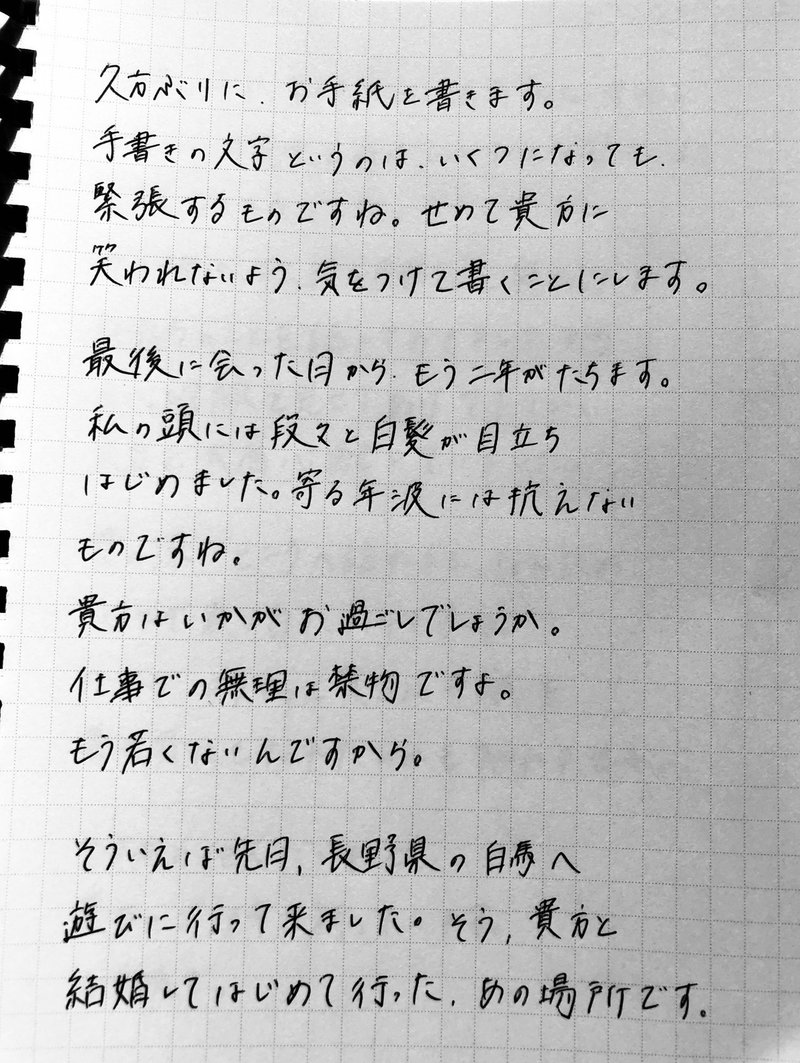 久方ぶりに、お手紙を書きます。
手書きの文字というのは、いくつになっても、
緊張するものですね。せめて貴方に
笑われないよう、気をつけて書くことにします。
最後に会った日から、もう二年がたちます。
私の頭には段々と白髪が目立ち
はじめました。寄る年波には抗えない
ものですね。
貴方はいかがお過ごしでしょうか。
仕事での無理は禁物ですよ。
もう若くないんですから。
そういえば先日、長野県の白馬へ
遊びに行って来ました。そう、貴方と
結婚してはじめて行った、あの場所です。